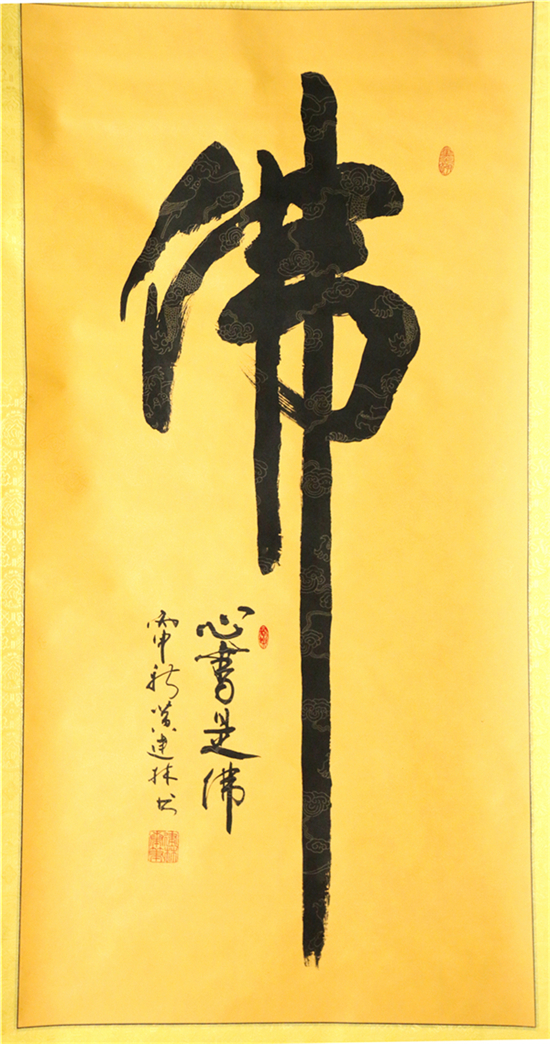 佛
心善是佛
丙申秋黄建林书